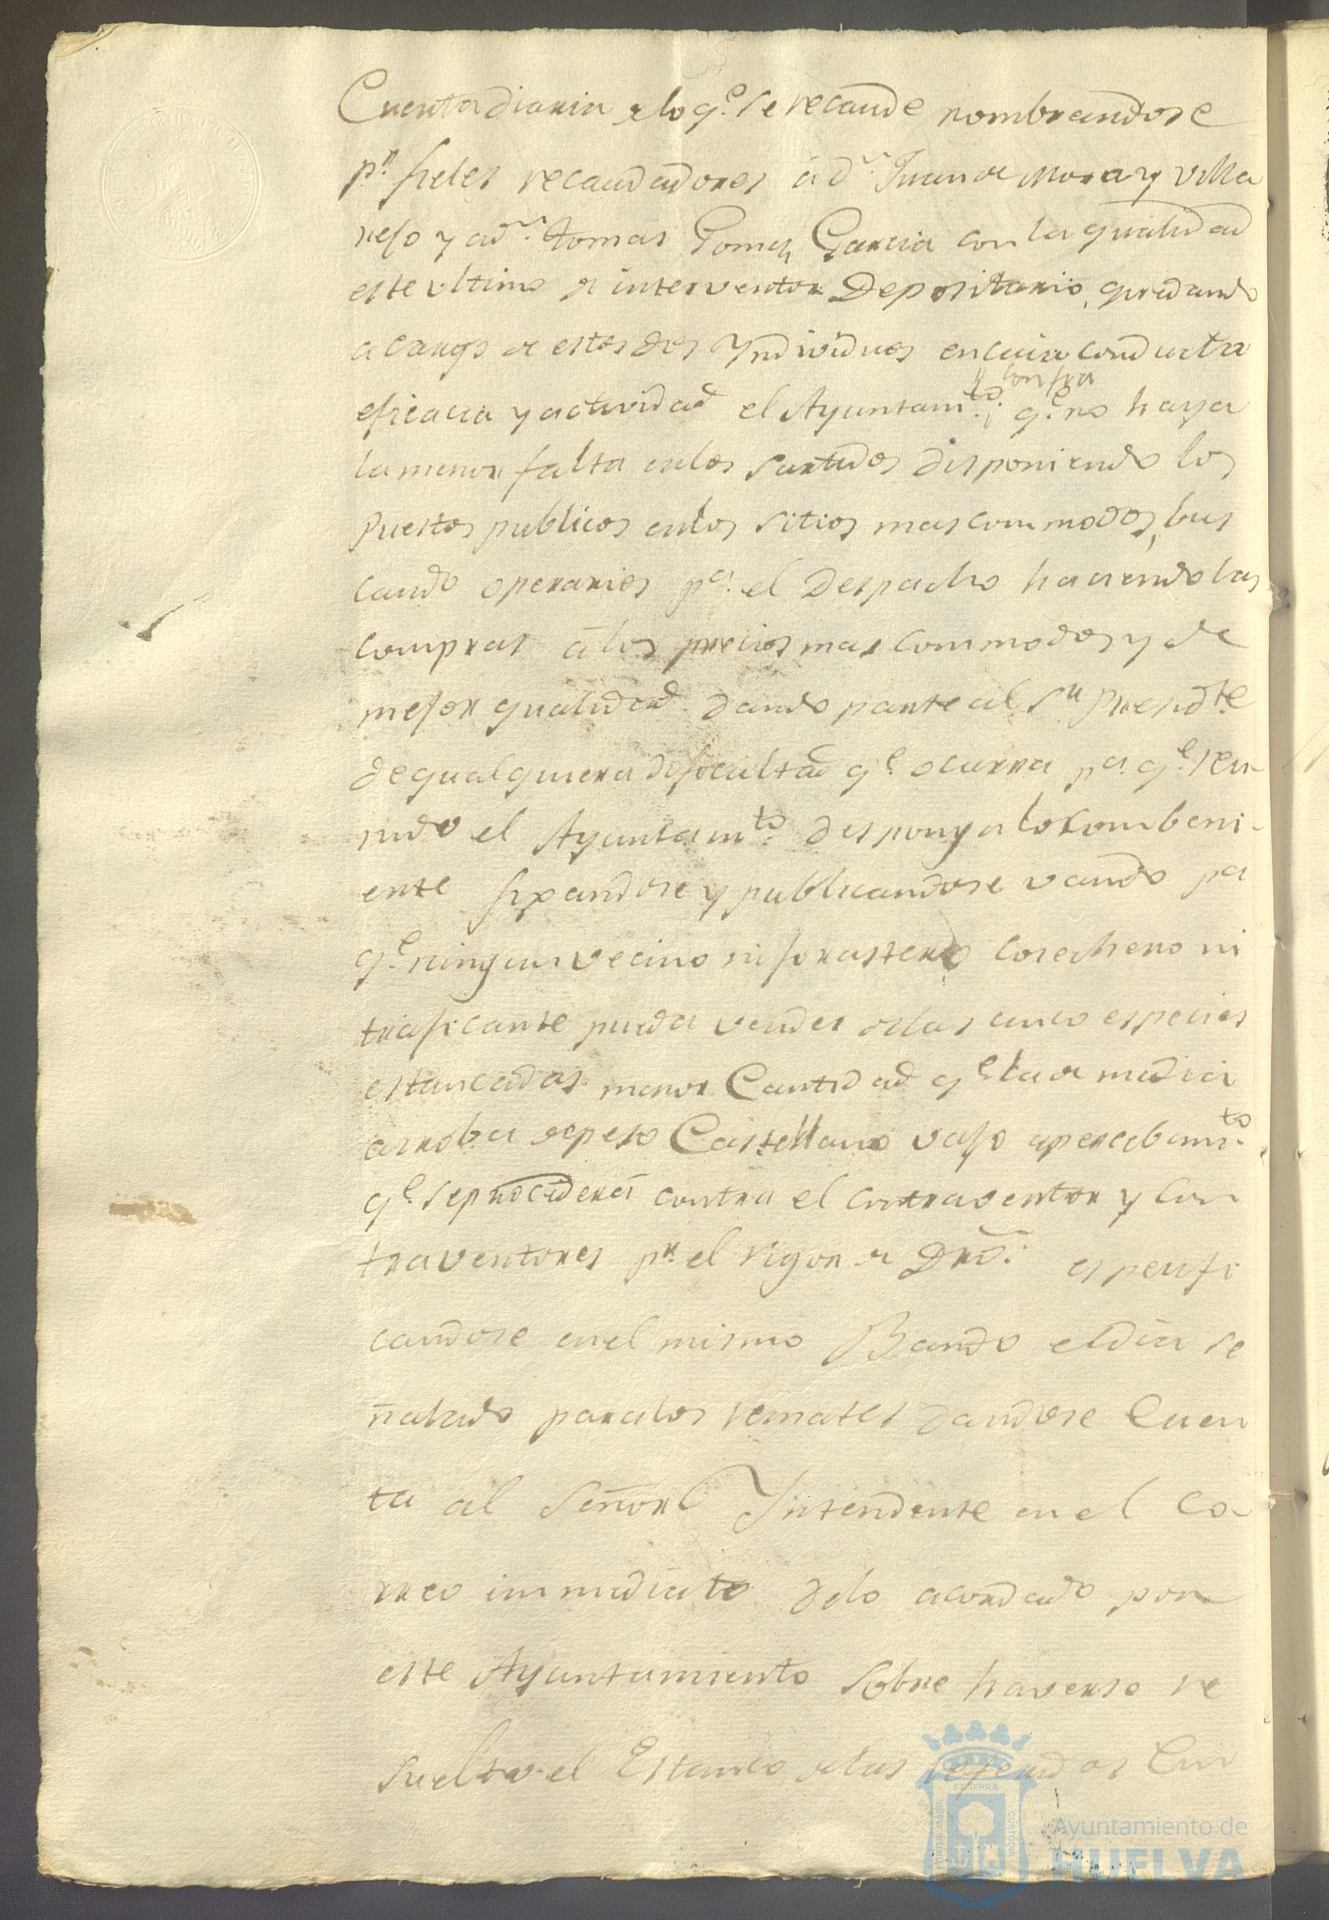 Cuenta diaria de lo q.e se recaude nombrandose
p.r fieles recaudadores á d.n Juan de Mora y Villa
nefo y a d.n Tomas Gomez Garcia con la qualidad
este ultimo de interventor Depositario, quedando
a cargo de estos dos Yndividuos en cuia conducta
eficacia y actividad el Ayuntam.to confia q.e no haya
la menor falta en los surtidos disponiendo los
Puestos publicos en los sitios mas commodos, bus
cando operarios p.a el Despacho haciendo las
compras á los precios mas commodos y de
mejor qualidad dando parte al S.r Presid.te
de qualquiera dificultad q.e ocurra p.a q.e reu
nido el Ayuntam.to disponga lo combeni-
ente fixandose y publicandose vando p.a
q.e ningun vecino ni forastero cosechero ni
traficante pueda vender de las cinco especies
estancadas menor Cantidad q.e la de media
arroba de peso Castellano vajo apercibimi.to
q.e se procederá contra el contraventor y con
traventores p.r el rigor de Dro: espesifi
candose en el mismo Bando el dia se
ñalado para los remates dandose Cuen
ta al Señor Intendente en el Co-
rreo immediato de lo acordado por
este Ayuntamiento sobre haverse re
suelto el Estanco de las referidas Cin
ET TERRA
Ayuntamiento de
HUELVA